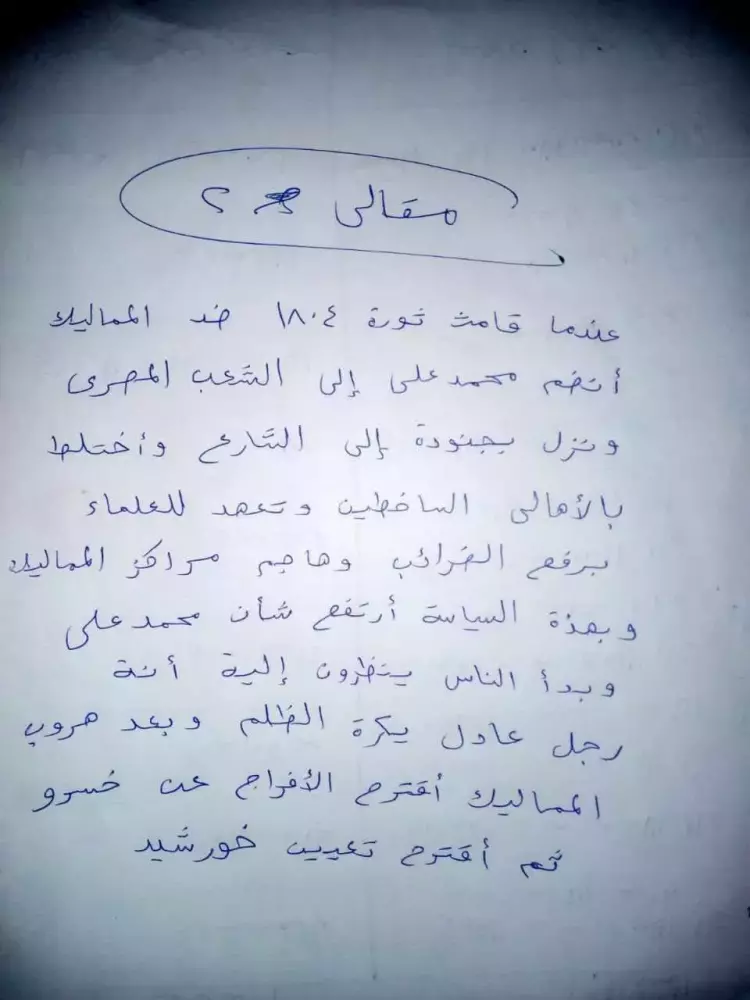 مقالى ٢
عندما قامت ثورة ١٨٠٤ ضد المماليك
أنضم محمد على إلى الشعب المصرى
ونزل بجنودة إلى الشارع وأختلط
بالأهالى الساخطين وتعهد للعلماء
برفع الضرائب وهاجم مراكز المماليك
وبهذة السياسة أرتفع شأن محمد على
وبدأ الناس ينظرون إلية أنة
رجل عادل يكرة الظلم وبعد هروب
المماليك أقترح الأفراج عن خسرو
ثم أقترح تعيين خورشيد